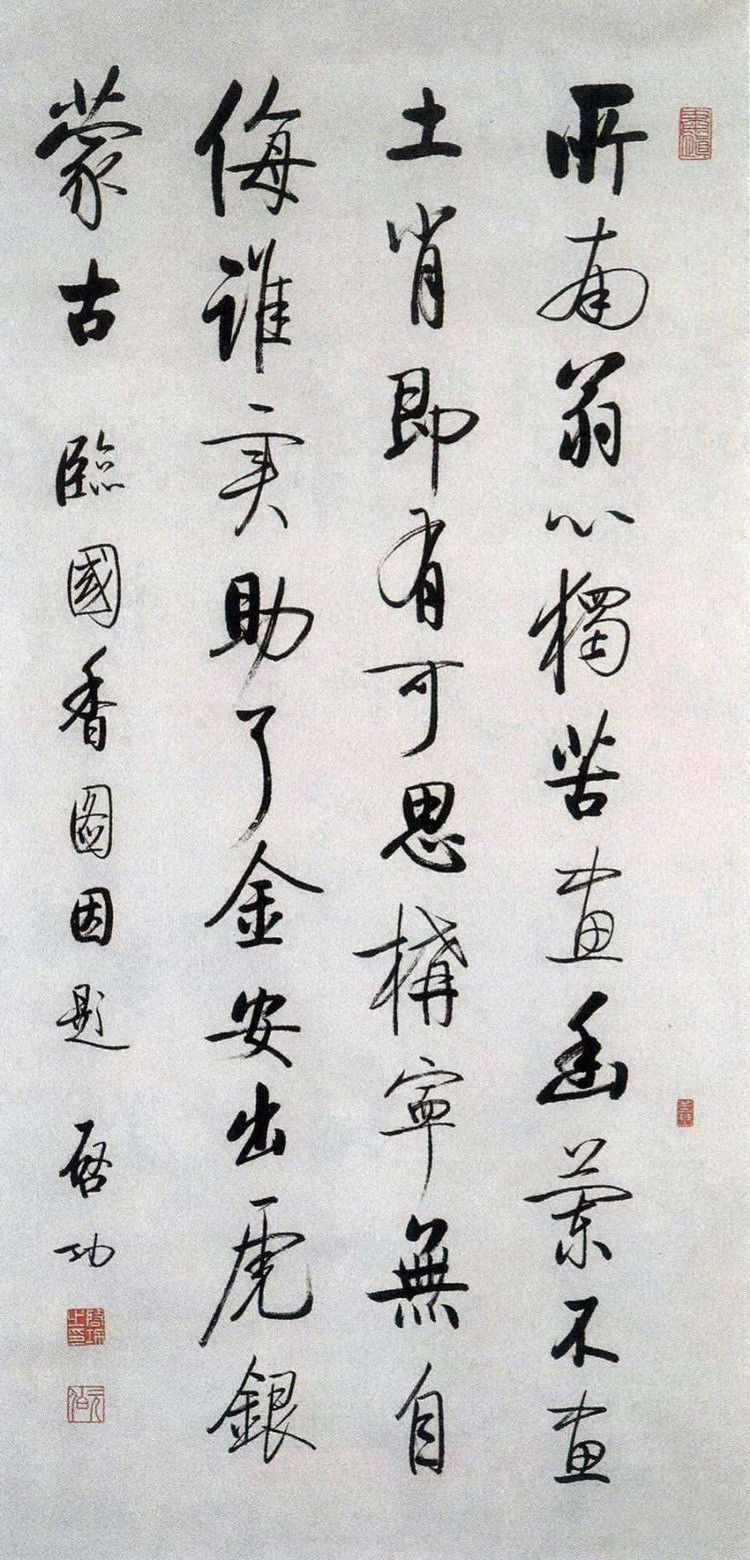 所南翁心獨苦畫幽蘭不畫
土肖即有可思構寧無自
侮誰實助了金安出虎銀
蒙古 臨國香圖因題 啓功
啓功之印
元白